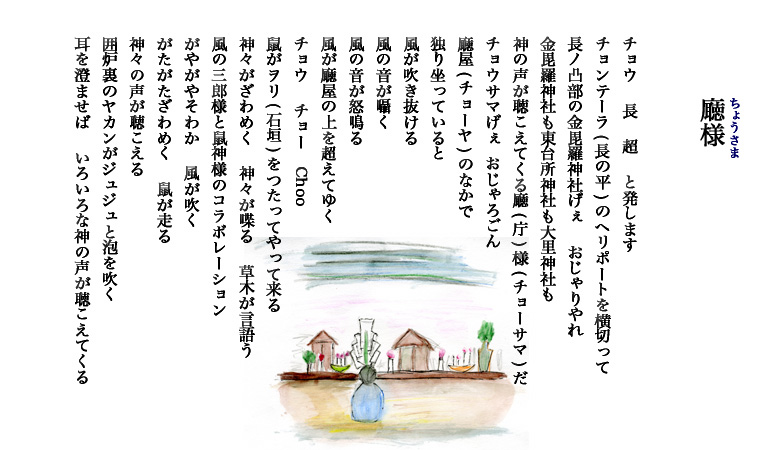 廳様
ちょうさま
チョウ　長　超　と発します
チョンテーラ(長の平)のヘリポートを横切って
長ノ凸部の金毘羅神社げぇ　おじゃりやれ
金毘羅神社も東台所神社も大里神社も
神の声が聴こえてくる廳(庁)様(チョーサマ)だ
チョウサマげぇ　おじゃろごん
廳屋(チョーヤ)のなかで
独り坐っていると
風が吹き抜ける
風の音が囁く
風の音が怒鳴る
風が廳屋の上を超えてゆく
チョウ　チョー　Choo
鼠がヲリ(石垣)をつたってやって来る
神々がざわめく　神々が喋る　草木が言語う
風の三郎様と鼠神様のコラボレーション
がやがやそわか　風が吹く
がたがたざわめく　鼠が走る
神々の声が聴こえる
囲炉裏のヤカンがジュジュと泡を吹く
耳を澄ませば　いろいろな神の声が聴こえてくる